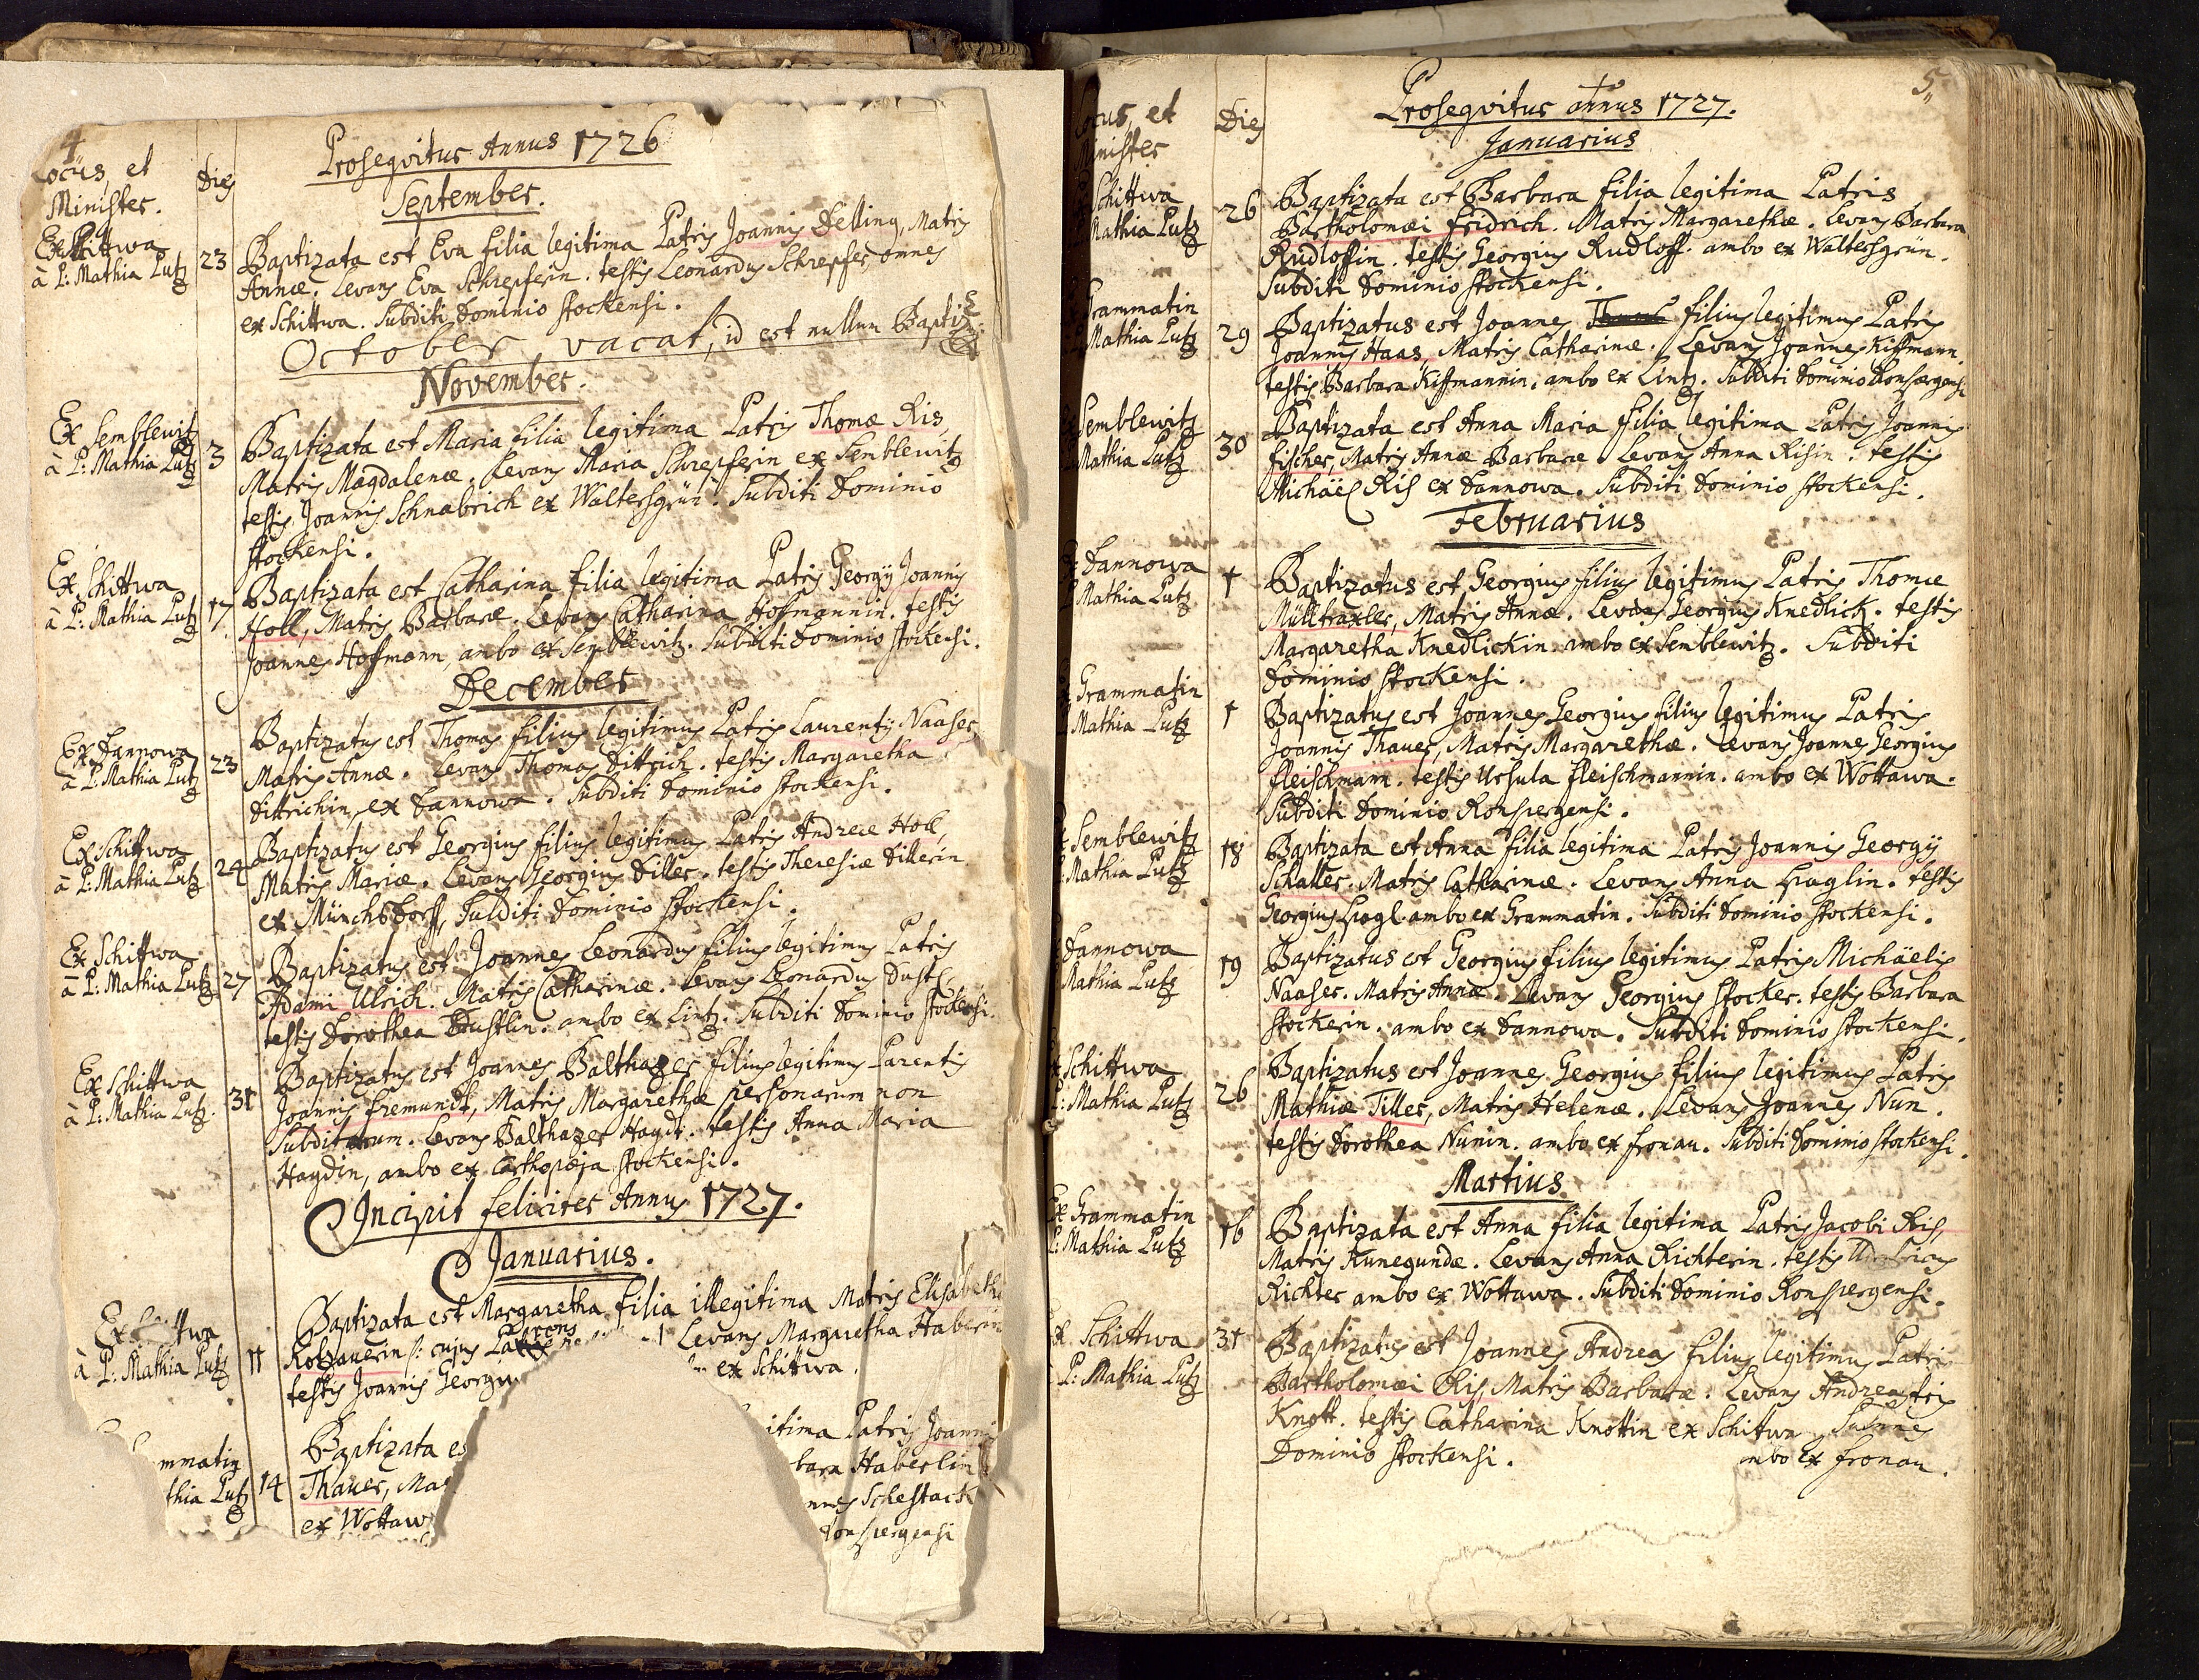 4
Locus, et
Minister.
Dies
Prosequitur Annus 1726
September.
Ex Schittwa
à P: Mathia Lutz
23
Baptizata est Eva filia legitima Patris Joannis Delling, Matris
Annæ. Levans Eva Schrepferin. testis Leonardus Schrepfer, omnes
ex Schittwa. Subditi Dominio Stockensi.
October vacat, id est nullum
November.
Ex Semblewitz
à P: Mathia Lutz
3
Baptizata est Maria filia legitima Patris Thomæ Ris,
Matris Magdalenæ. Levans Maria Schrepferin ex Semblewitz
testis Joannis Schnabrich ex Waltersgrün. Subditi Dominio
Stockensi.
Ex Schittwa
à P: Mathia Lutz
17
Baptizata est Catharina filia legitima Patris Georgÿ Joannis
Holl, Matris Barbaræ. Levans Catharina Hofmannin. testis
Joannes Hoffmann, ambo ex Semblewitz. Subditi Dominio Stockensi.
December
Ex Dannowa
à P: Mathia Lutz
23
Baptizatus est Thomas filius legitimus Patris Laurentÿ Naaser,
Matris Annæ. Levans Thomas Dittrich. testis Margaretha
Dittrichin, ex Dannowa. Subditi Dominio Stockensi.
Ex Schittwa
à P: Mathia Lutz
24
Baptizatus est Georgius filius legitimus Patris Andreæ Holl,
Matris Mariæ. Levans Georgius Diller. testis Theresiæ Dillerin
ex Münchsdorff, Subditi Dominio Stockensi.
Ex Schittwa
à P: Mathia Lutz
27
Baptizatus est Joannes Leonardus filius legitimus Patris
Adami Ulrich. Matris Catharinæ. Levans Leonardus Dustl
testis Dorothea Dustlin. ambo ex Lintz. Subditi Dominio Stockensi.
Ex Schittwa
à P: Mathia Lutz.
31
Baptizatus est Joannes Balthazer filius legitimus Parentis
Joannis Fremundt, Matris Margarethæ personarum non
Subditarum. Levans Balthazer Haydt. testis Anna Maria
Haydin, ambo ex Stockensi.
Incipit feliciter Annus 1727.
Januarius.
Ex Schittwa
à P: Mathia Lutz
11
Baptizata est Margaretha filia illegitima Matris Elisabethæ
Kotzauerin /: cujus Levans Margaretha Haberin
testis Joannis Georgiu ex Schittwa.
mmatin
thia Lutz
14
Baptizata es itima Patris Joannis
Thauer, Ma bara Haberlin
ex Wottaw nnes Schestack
Ronspergensi
5
Locus, et
Minister
Dies
Prosequitur annus 1727.
Januarius
Schittwa
Mathia Lutz
26
Baptizata est Barbara filia legitima Patris
Bartholomæi Fridrich. Matris Margarethæ. Levans Barbara
Rudloffin. testis Georgius Rudloff. ambo ex Waltersgrün.
Subditi Dominio Stockensi.
Grammatin
Mathia Lutz
29
Baptizatus est Joannes filius legitimus Patris
Joannis Haas, Matris Catharinæ. Levans Joannes Kiffmann.
testis Barbara Kiffmannin. ambo ex Lintz. Subditi Dominio Ronspergensi.
Semblewitz
Mathia Lutz
30
Baptizata est Anna Maria filia legitima Patris Joannis
Fischer, Matris Annæ Barbaræ. Levans Anna Risin. testis
Michäel Ris ex Dannowa. Subditi Dominio Stockensi.
Februarius
Dannowa
Mathia Lutz
1
Baptizatus est Georgius filius legitimus Patris Thomæ
Mülltraxler, Matris Annæ. Levans Georgius Knedlick. testis
Margaretha Knedlickin. ambo ex Semblewitz. Subditi
Dominio Stockensi.
Grammatin
Mathia Lutz
1
Baptizatus est Joannes Georgius filius legitimus Patris
Joannis Thauer, Matris Margarethæ. Levans Joannes Georgius
Fleischmann. testis Ursula Fleischmannin. ambo ex Wottawa.
Subditi Dominio Ronspergensi.
Semblewitz
Mathia Lutz
18
Baptizata est Anna filia legitima Patris Joannis Georgÿ
Schaller. Matris Catharinæ. Levans Anna Hraglin. testis
Georgius Hragl. ambo ex Grammatin. Subditi Dominio Stockensi.
Dannowa
Mathia Lutz
19
Baptizatus est Georgius filius legitimus Patris Michäelis
Naaser. Matris Annæ. Levans Georgius Stocker. testis Barbara
Stockerin. ambo ex Dannowa. Subditi Dominio Stockensi.
Schittwa
P: Mathia Lutz
26
Baptizatus est Joannes Georgius filius legitimus Patris
Mathiæ Tiller, Matris Helenæ. Levans Joannes Nun.
testis Dorothea Nunin. ambo ex Fronau. Subditi Dominio Stockensi.
Martius
Ex Grammatin
P: Mathia Lutz
16
Baptizata est Anna filia legitima Patris Jacobi Ris,
Matris Kunegundæ. Levans Anna Richterin. testis
Richter ambo ex Wottawa. Subditi Dominio Ronspergensi.
Ex Schittwa
P: Mathia Lutz
31
Baptizatus est Joannes Andreas filius legitimus Patris
Bartholomæi Ris, Matris Barbaræ. Levans Andreas
Knott. testis Catharina Knottin ex Schittwa
Dominio Stockensi. mbo ex Fronau.